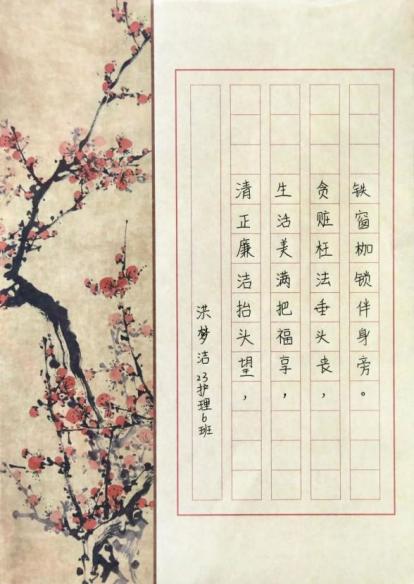 清正廉洁抬头望，
生活美满把福享，
贪赃枉法垂头丧，
铁窗枷锁伴身旁。
洪梦洁 23护理6班